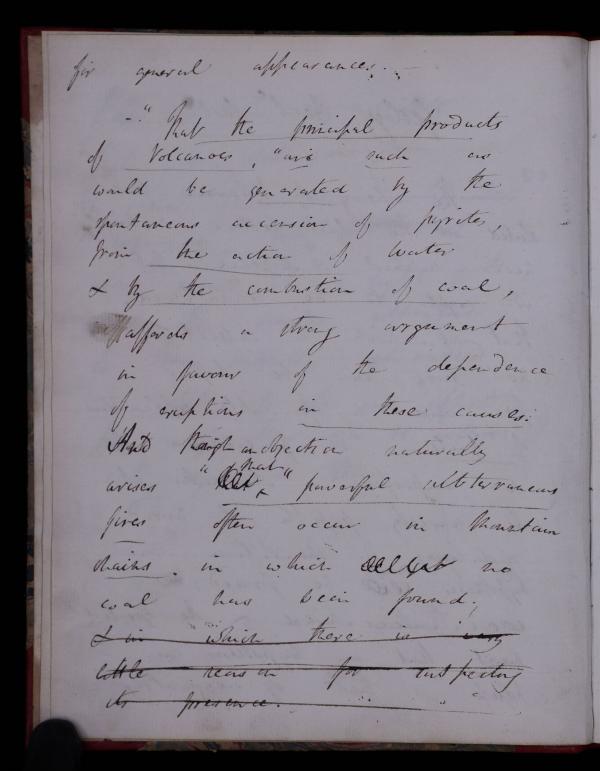 for general appearances. —
— "That the principal products
of Volcanoes, "are such as
would be generated by the
spontaneous accension of pyrites,
from the action of water
& by the combustion of coal,
affords a strong argument
in favour of the dependence
of eruptions in these causes:
And though an objection naturally
arises "that "powerful subterraneous
fires often occur in Mountain
chains in which no
coal has been found;
& in which there is very
little reason for suspecting
its presence.